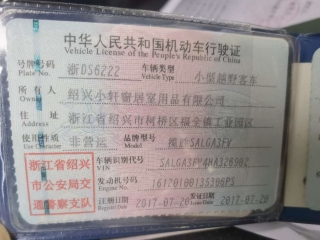 中华人民共和国机动车行驶证
Vehicle License of the People's Republic of China
号牌号码 浙DS6222 车辆类型 小型越野客车
Plate No. Vehicle Type
所有人 绍兴小轩窗居室用品有限公司
Owner
住址 浙江省绍兴市柯桥区福全镇工业园区
Address
使用性质 非营运 品牌型号 揽胜SALGA3FV
Use Character Model
浙江省绍兴
市公安局交
通警察支队
车辆识别代号
VIN
发动机号码 16120100135306PS
Engine No.
注册日期 2017-07-20 发证日期 2017-07-20
Register Date Issue Date